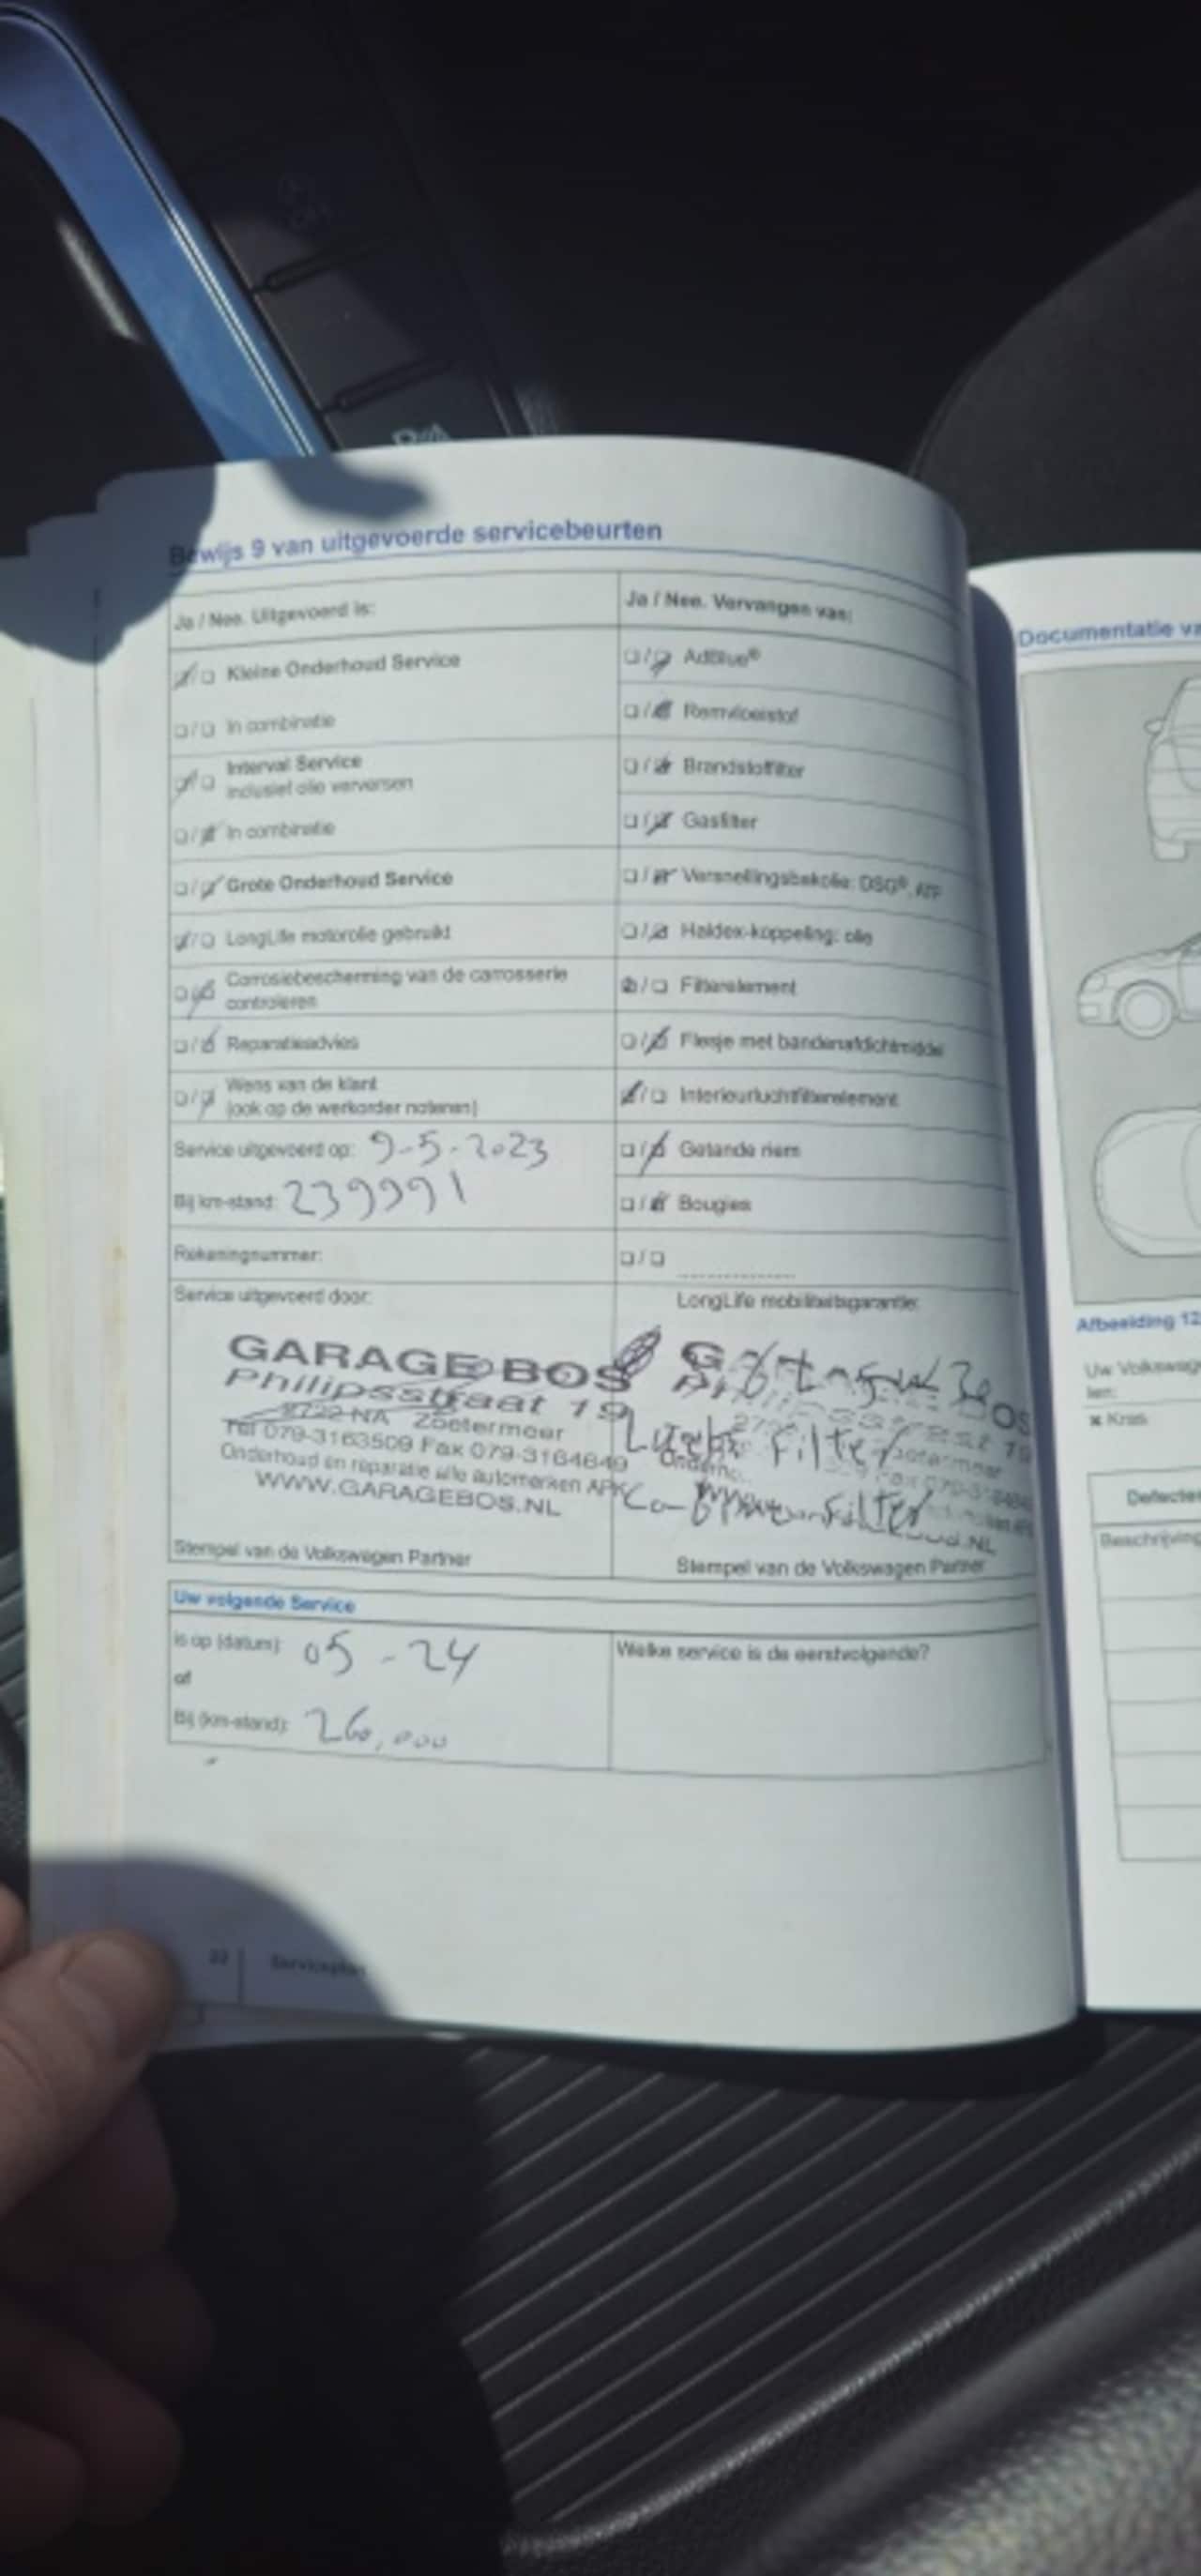 Bewijs 9 van uitgevoerde servicebeurten
Ja / Nee. Uitgevoerd is:
Kleine Onderhoud Service
In combinatie
Interval Service
inclusief olie verversen
In combinatie
Grote Onderhoud Service
LongLife motorolie gebruikt
Corrosiebescherming van de carrosserie
controleren
Reparatieadvies
Wens van de klant
(ook op de werkorder noteren)
Service uitgevoerd op: 9-5-2023
Bij km-stand: 239991
Rekeningnummer:
Service uitgevoerd door:
GARAGE BOS
Philipsstraat 19
2722 NA Zoetermeer
Tel 079-3163509 Fax 079-3164649
Onderhoud en reparatie alle automerken APK
WWW.GARAGEBOS.NL
Stempel van de Volkswagen Partner
Ja / Nee. Vervangen van:
AdBlue®
Remvloeistof
Brandstoffilter
Gasfilter
Versnellingsbakolie: DSG®, ATF
Haldex-koppeling: olie
Filterelement
Flesje met bandenafdichtmiddel
Interieurluchtfilterelement
Getande riem
Bougies
LongLife mobiliteitsgarantie:
Filter
Stempel van de Volkswagen Partner
Uw volgende Service
is op (datum): 05-24
of
Bij (km-stand): 260,000
Welke service is de eerstvolgende?
22 Serviceplan
Documentatie va
Afbeelding 12
Uw Volkswag
len:
Kras
Defecte
Beschrijving